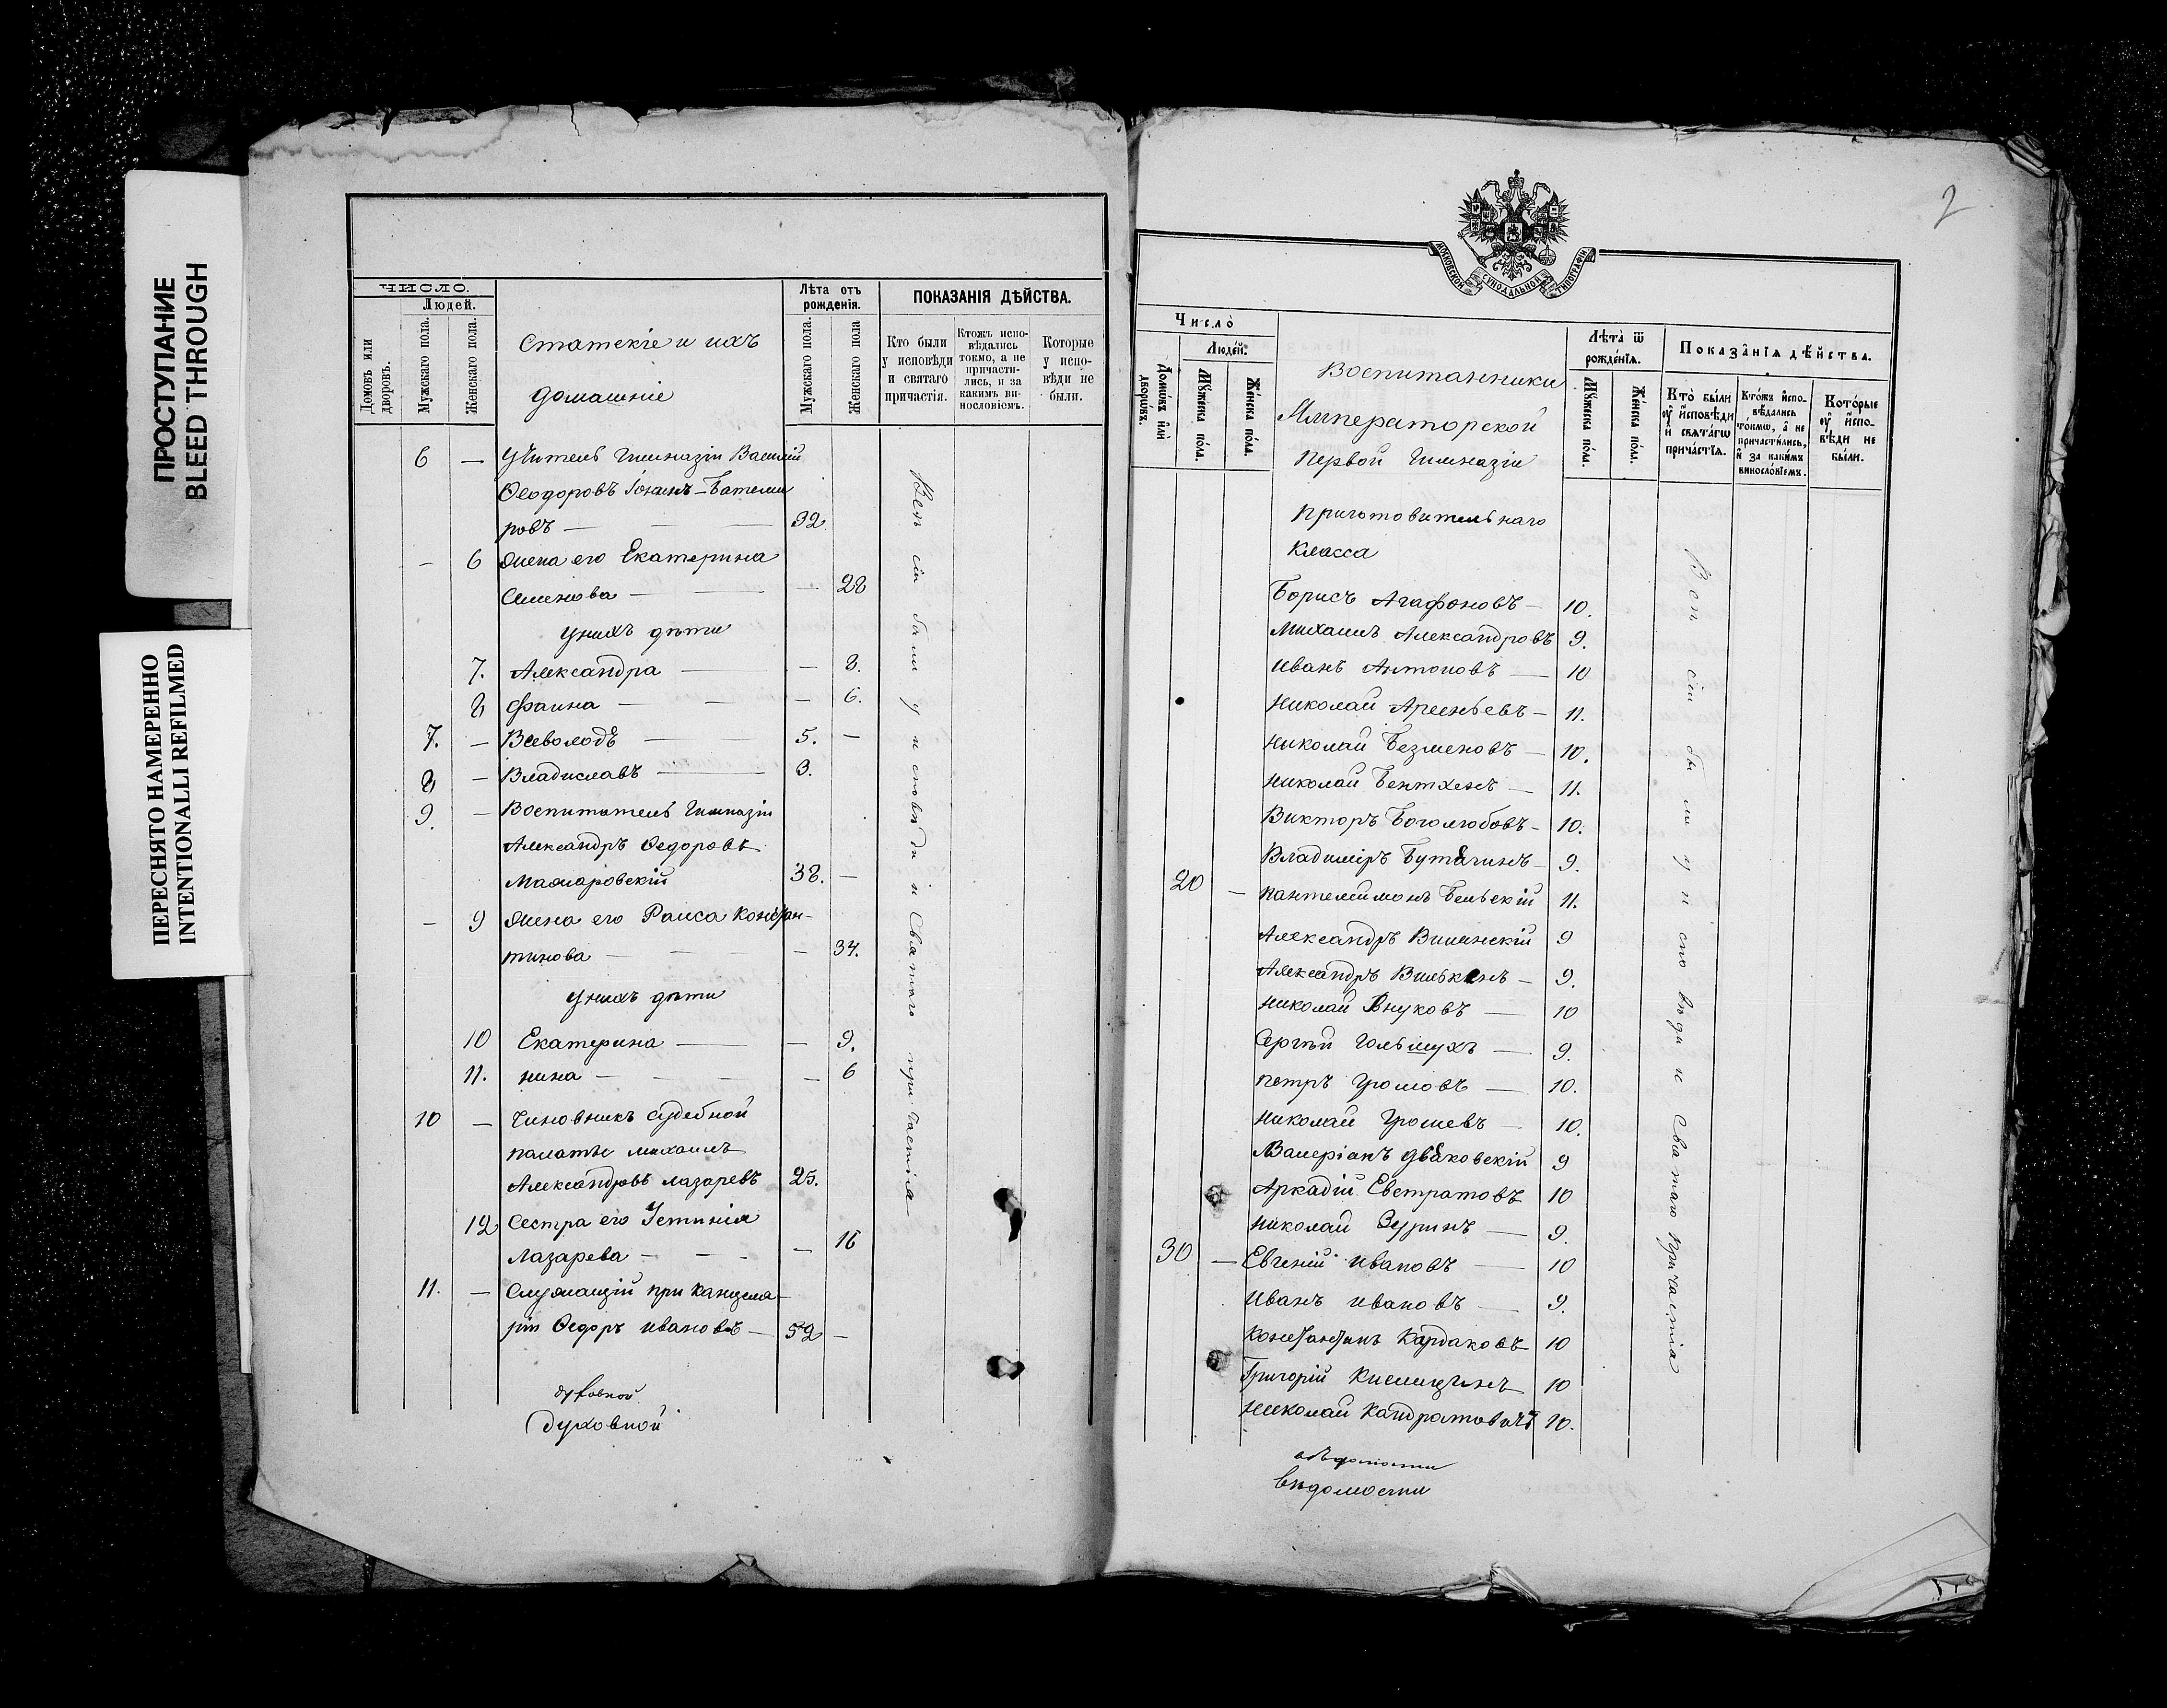 ПРОСТУПАНИЕ
BLEED THROUGH
ПЕРЕСНЯТО НАМЕРЕННО
INTENTIONALLI REFILMED
ЧИСЛО.
Людей.
Домовъ или дворовъ.
Мужскаго пола.
Женскаго пола.
Статскіе и ихъ
домашніе
Лѣта отъ рожденія.
Мужскаго пола.
Женскаго пола
ПОКАЗАНІЯ ДѢЙСТВА.
Кто были у исповѣди и святаго причастія.
Ктожъ исповѣдались токмо, а не причастились, и за какимъ винословіемъ.
Которые у исповѣди не были.
6 — Учитель Гимназіи Василій
Ѳеодоровъ
ровъ — 32
— 6 Жена его Екатерина
Семенова — — 28
У нихъ дѣти
7. Александра — — 8.
8 Фаина — — 6.
7. — Всеволодъ — 5. —
8 — Владиславъ — 3.
9. — Воспитатель Гимназіи
Александръ Ѳедоровъ
Мажаровскій 38. —
— 9 Жена его Раиса Констан-
тинова — — 34.
У нихъ дѣти
10 Екатерина — — 9.
11. Нина — — 6
10 — Чиновникъ судебной
палаты Михаилъ
Александровъ Лазаревъ 25.
12 Сестра его Устинія
Лазарева — — 16
11. — Служащій при канцеля-
ріи Ѳедоръ Ивановъ — 52 —
Всѣ сіи были у исповѣди и Святаго причастія
духовной
Духовной
2
МОСКОВСКОЙ СѴНОДАЛЬНОЙ ТИПОГРАФІИ
Число̀
Люде́й.
Домѡ́въ и҆лѝ дворѡ́въ.
Мꙋ́жеска по́ла.
Же́нска по́ла.
Воспитанники
Императорской
Первой Гимназіи
Лѣ́та ѿ рожде́нїѧ.
Мꙋ́жеска по́ла.
Же́нска по́ла.
Показа̑нїѧ дѣ́йства.
Кто̀ бы́ли ᲂу҆ и҆сповѣ́ди и҆ свѧта́гѡ прича́стїѧ.
Кто́жъ и҆сповѣ́дались то́кмѡ, а҆ не причасти́лись, и҆ за каки́мъ виносло́вїемъ.
Кото́рые ᲂу҆ и҆сповѣ́ди не бы́ли.
Приготовительнаго
Класса
Борисъ Агафоновъ — 10.
Михаилъ Александровъ 9.
Иванъ Антоновъ — 10
Николай Арсеньевъ — 11.
Николай Безменовъ — 10.
Николай Бентхенъ — 11.
Викторъ Боголюбовъ — 10.
Владиміръ Бутягинъ — 9.
20 — Пантелеймонъ Бельскій 11.
Александръ Виленскій 9
Александръ Вилькенъ — 9.
Николай Внуковъ — 10
Сергѣй Гольмухъ — 9.
Петръ Громовъ — 10.
Николай Грошевъ — 10.
Валеріанъ 9
Аркадій Евстратовъ 10
Николай Зуринъ — 9.
30 — Евгеній Ивановъ — 10
Иванъ Ивановъ — 9.
Константинъ Кардаковъ 10
Григорій 10
Николай Кандратовичъ 10.
Всѣ сіи были у исповѣди и Святаго Причастія
вѣдомости